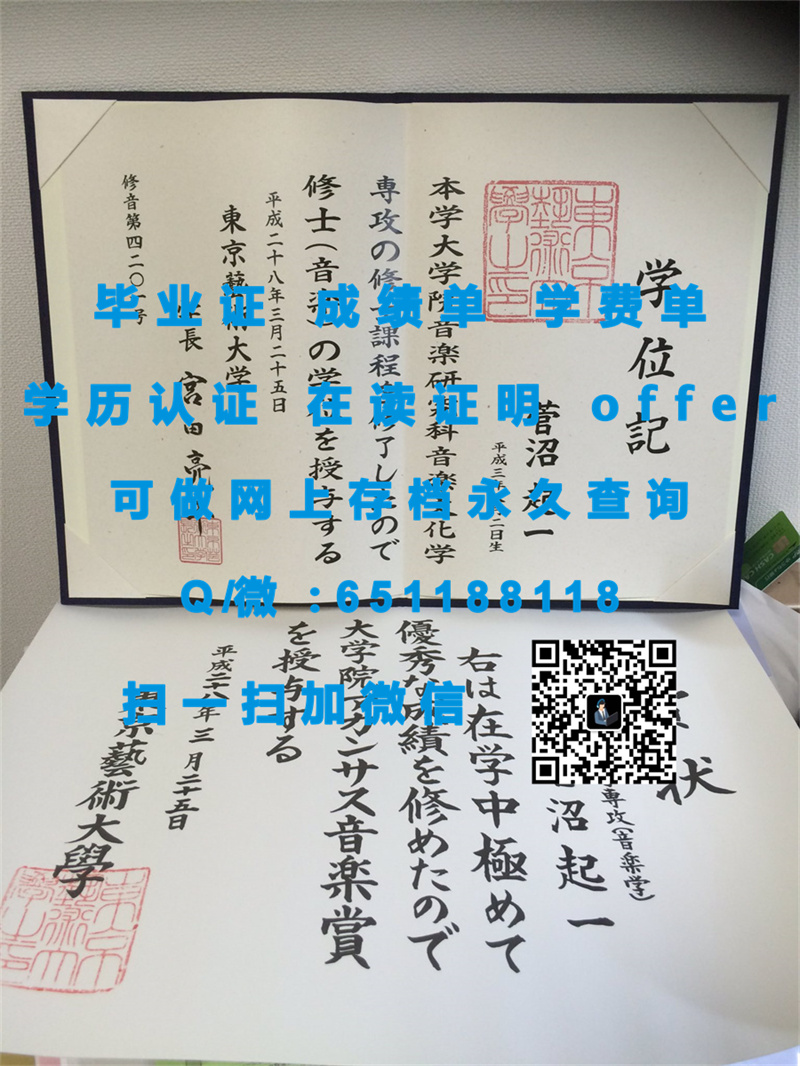 学位記
菅沼起一
平成三年 二日生
本学大学院音楽研究科音楽文化学
専攻の修士課程を修了したので
修士(音楽)の学位を授与する
平成二十八年三月二十五日
東京藝術大学
学長 宮田亮平
修音第四二〇一号
毕业证 成绩单 学费单
学历认证 在读证明 offer
可做网上存档永久查询
Q/微 :651188118
扫一扫加微信
状
専攻(音楽学)
沼起一
右は在学中極めて
優秀な成績を修めたので
大学院アカンサス音楽賞
を授与する
平成二十八年三月二十五日
東京藝術大學